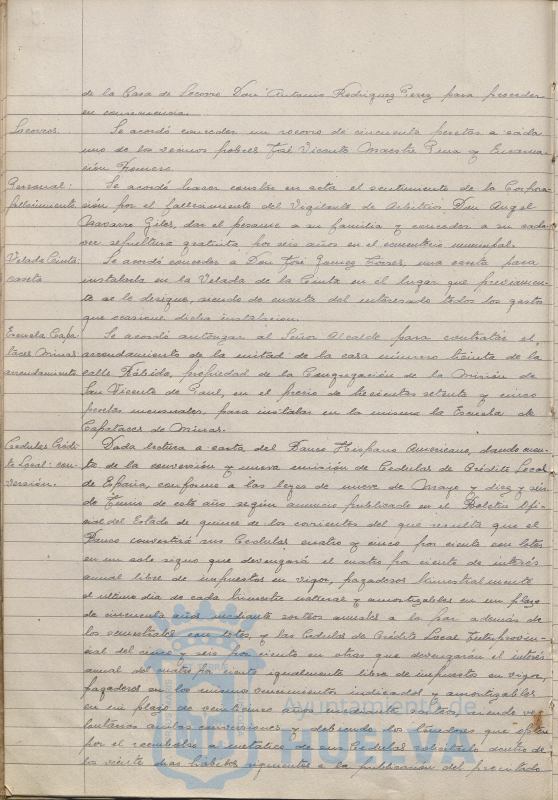 de la Casa de Socorro Don Antonio Rodriguez Perez para proceder
en consecuencia.
Socorros. Se acordó conceder un socorro de cincuenta pesetas a cada
uno de los vecinos pobres José Vicente Maestre Pina y Encarna-
ción Romero.
Personal: Se acordó hacer constar en acta el sentimiento de la Corpora-
fallecimiento. sión por el fallecimiento del Vigilante de Arbitrios Don Angel
Navarro Giles, dar el pesame a su familia y conceder a su cada-
ver sepultura gratuita por seis años en el cementerio municipal.
Velada Cinta: Se acordó conceder a Don José Gomez, una caseta para
caseta. instalarla en la Velada de la Cinta en el lugar que previamen-
te se le designe, siendo de cuenta del interesado todos los gastos
que ocasione dicha instalación.
Escuela Capa- Se acordó autorizar al Señor Alcalde para contratar el
taces Minas: arrendamiento de la mitad de la casa número treinta de la
arrendamiento calle Rábida, propiedad de la Congregación de la Misión de
San Vicente de Paul, en el precio de trecientas setenta y cinco
pesetas mensuales, para instalar en la misma la Escuela de
Capataces de Minas.
Cedulas Crédi- Dada lectura a carta del Banco Hispano Americano, dando cuen-
to Local: con- ta de la conversión y nueva emisión de Cedulas de Crédito Local
versión. de España, conforme a las leyes de nueve de Mayo y diez y seis
de Junio de este año según anuncio publicado en el Boletin Ofi-
cial del Estado de quince de los corrientes del que resulta que el
Banco convertirá sus Cedulas cuatro y cinco por ciento con lotes
en un solo signo que devengará el cuatro por ciento de interés
anual libre de impuestos en vigor, pagadero trimestralmente
el ultimo dia de cada trimestre natural y amortizables en un plazo
de cincuenta años mediante sorteos anuales a la par además de
los semestrales con lotes, y las Cedulas de Crédito Local Interprovin-
cial del cinco y seis por ciento en otras que devengarán el interés
anual del cuatro por ciento igualmente libre de impuestos en vigor,
pagaderos en los mismos vencimientos indicados y amortizables
en un plazo de veinticinco años mediante sorteos, siendo vo-
luntarias ambas conversiones y debiendo los tenedores que opten
por el reembolso a metalico de sus Cedulas solicitarlo dentro de
los veinte dias habiles siguientes a la publicación del precitado
Ayuntamiento de
HUELVA